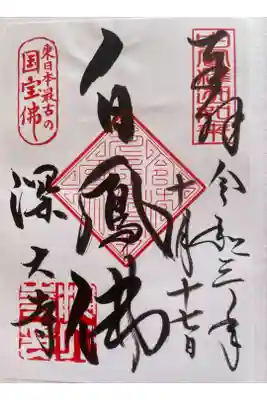 奉拝
令和三年
十月十七日
白鳳佛
深大寺
東日本最古の
国宝佛